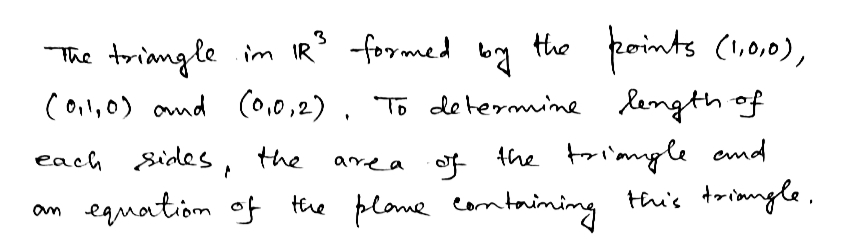 The triangle in ℝ³ formed by the points (1,0,0),
(0,1,0) and (0,0,2). To determine length of
each sides, the area of the triangle and
an equation of the plane containing this triangle.